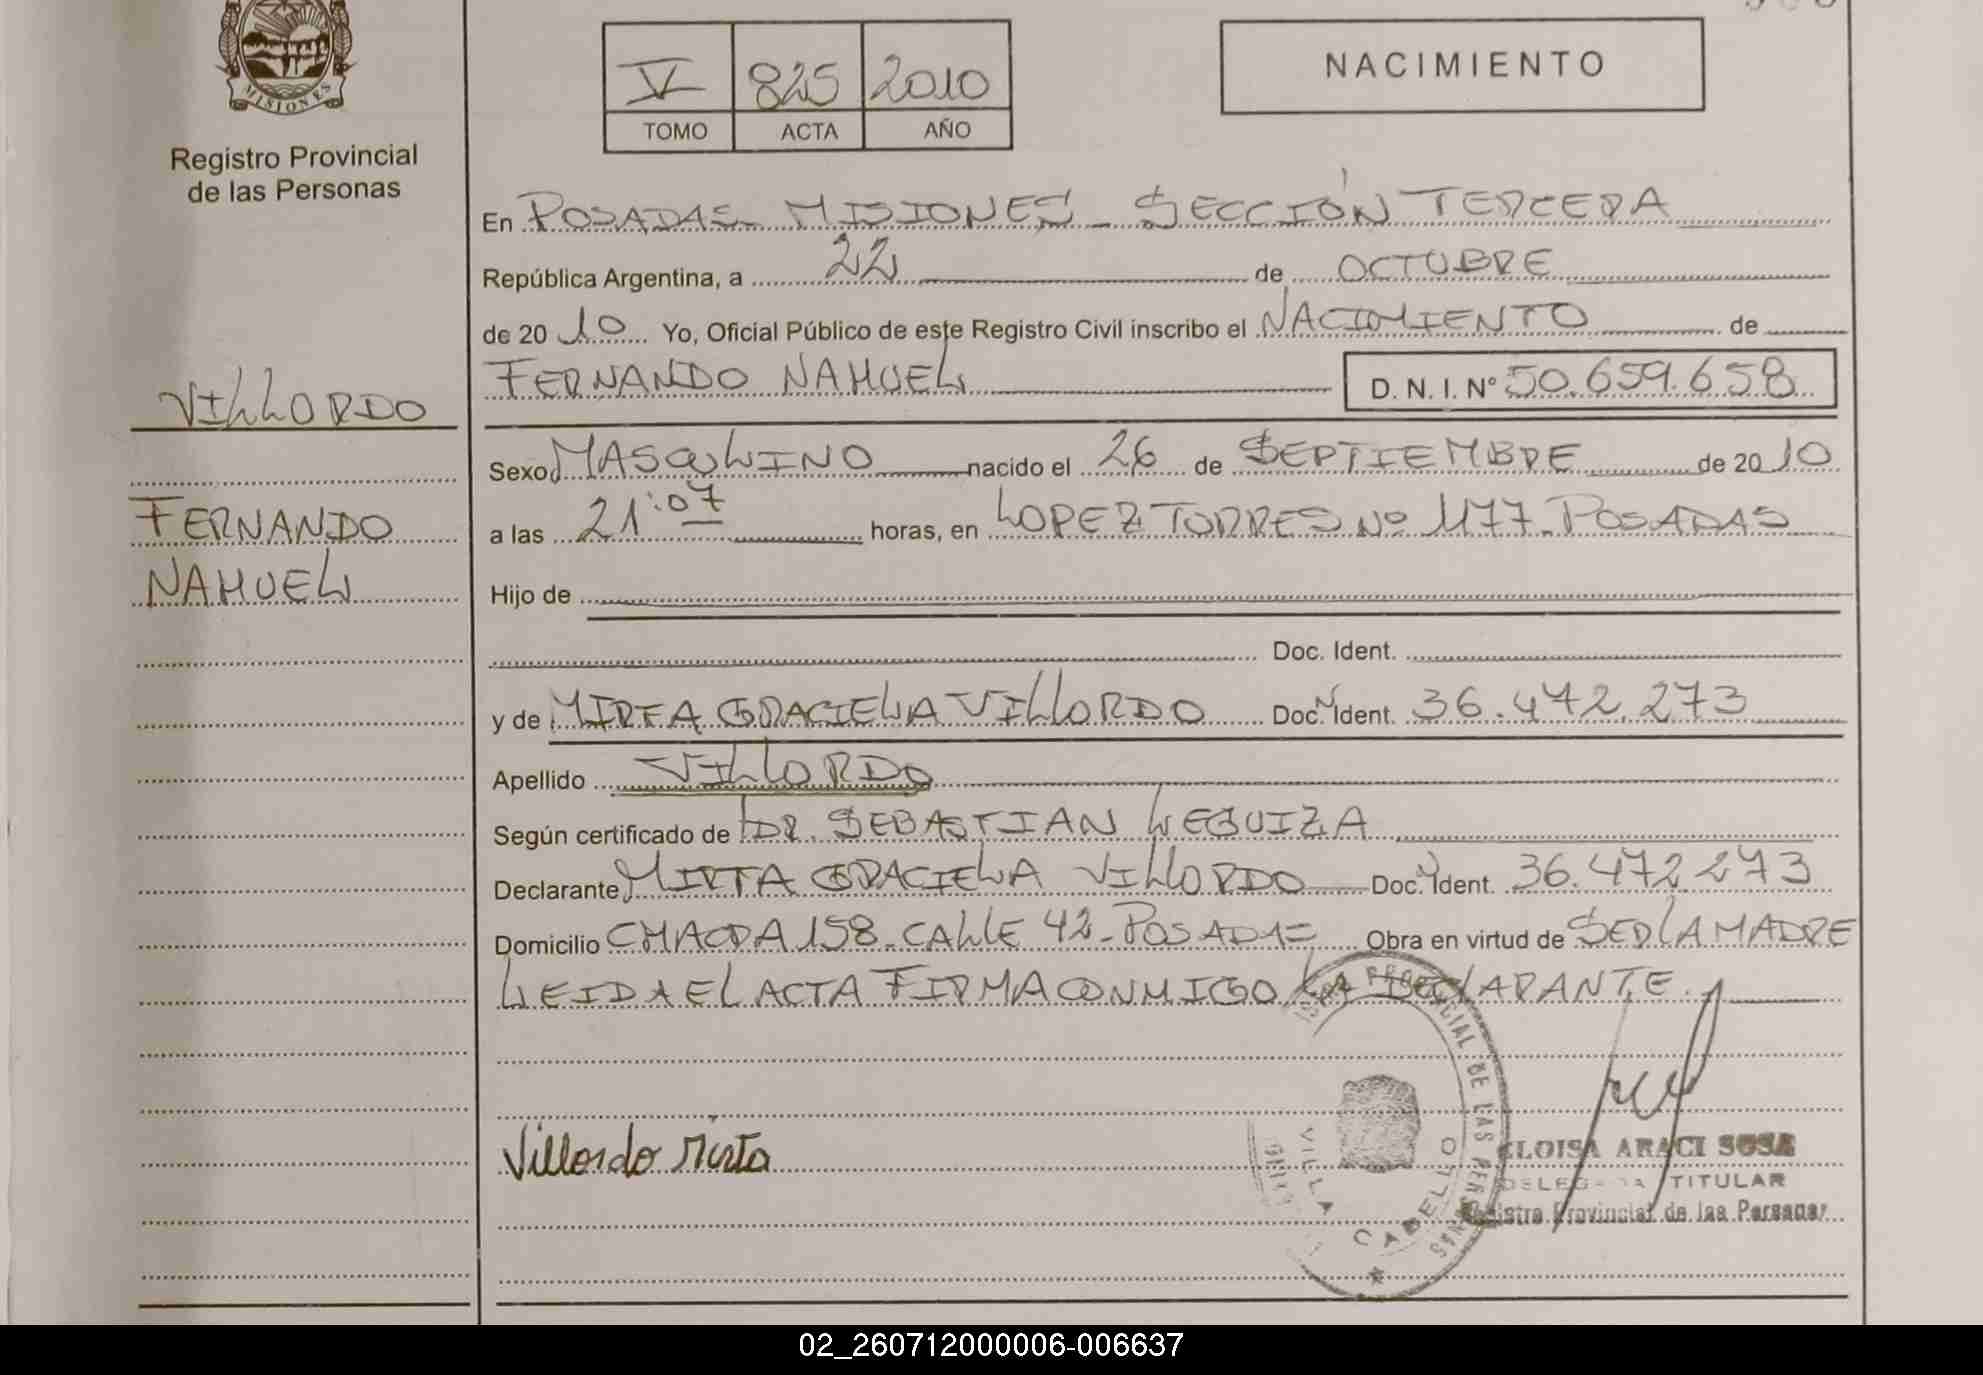 MISIONES
Registro Provincial
de las Personas
VILLORDO
FERNANDO
NAHUEL
V 825 2010
TOMO ACTA AÑO
NACIMIENTO
En POSADAS - MISIONES - SECCIÓN TERCERA
República Argentina, a 22 de OCTUBRE
de 2010 Yo, Oficial Público de este Registro Civil inscribo el NACIMIENTO de
FERNANDO NAHUEL D. N. I. N° 50.659.658
Sexo MASCULINO nacido el 26 de SEPTIEMBRE de 2010
a las 21:07 horas, en LOPEZ TORRES Nº 1177 - POSADAS
Hijo de
Doc. Ident.
y de MIRTA GRACIELA VILLORDO Doc. Ident. 36.472.273
Apellido VILLORDO
Según certificado de DR. SEBASTIAN LEGUIZA
Declarante MIRTA GRACIELA VILLORDO Doc. Ident. 36.472.273
Domicilio CHACRA 158 - CALLE 42 - POSADAS Obra en virtud de SER LA MADRE
LEIDA EL ACTA FIRMA CONMIGO LA DECLARANTE.
Villordo Mirta
PROVINCIAL DE LAS PERSONAS
VILLA CABELLO
ELOISA ARACI SOSA
DELEGADA TITULAR
Registro Provincial de las Personas
02_260712000006-006637